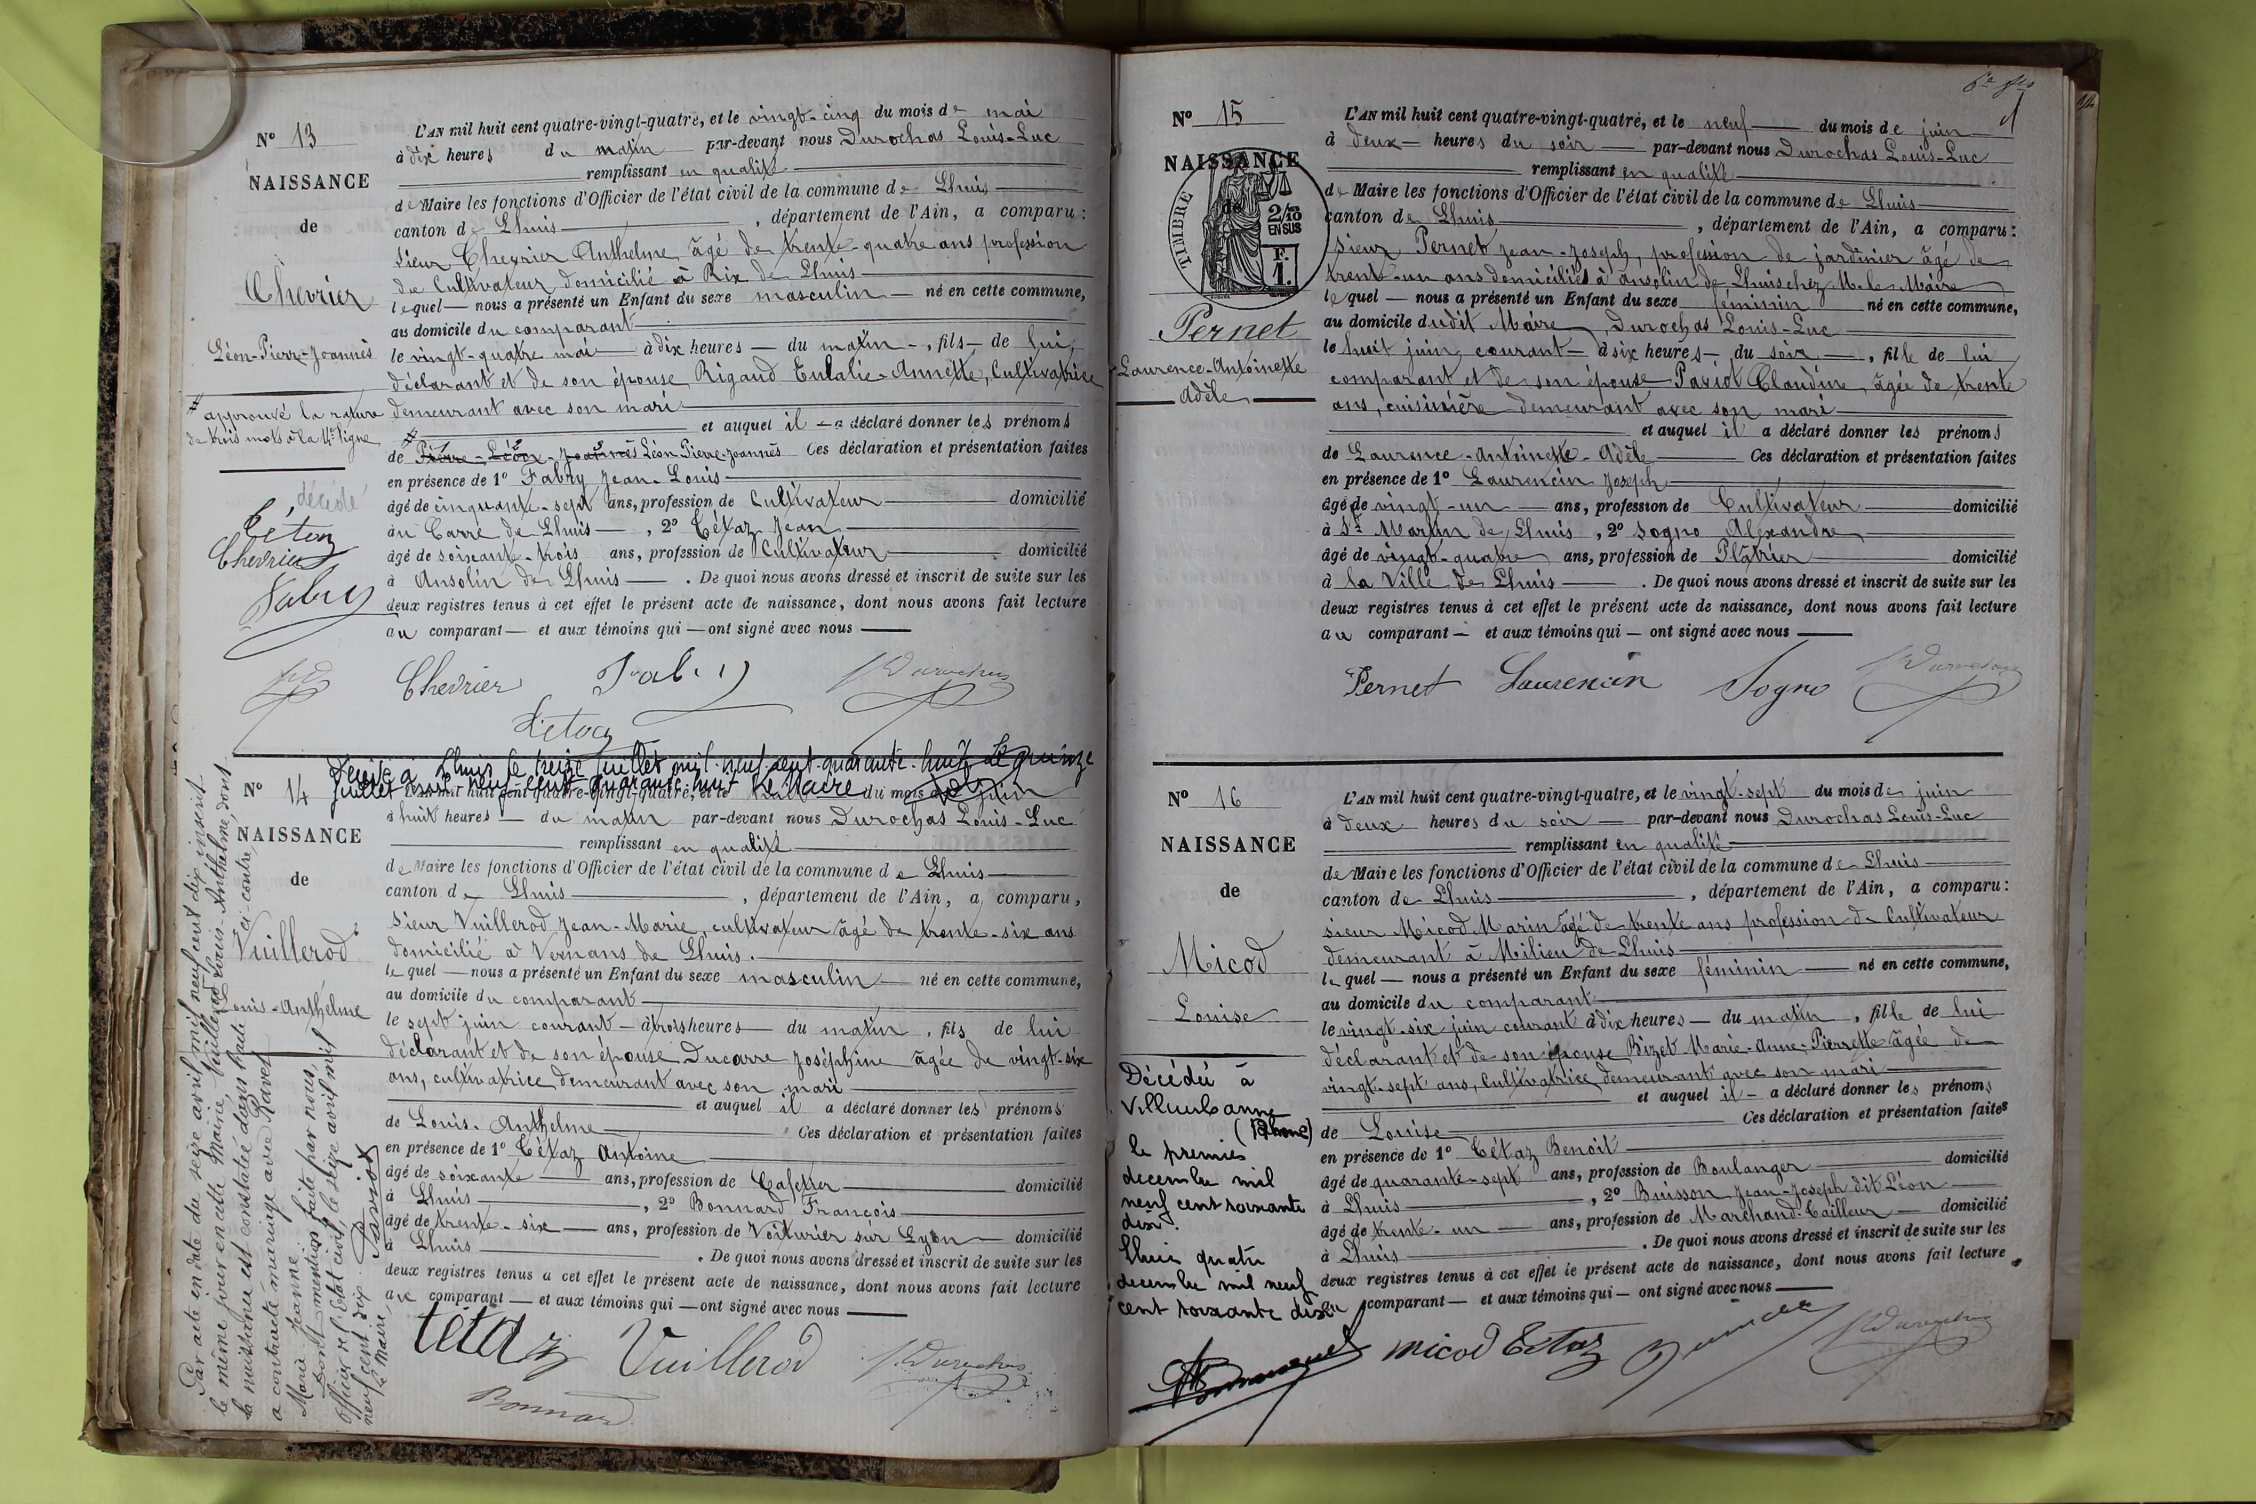 Nº 13
NAISSANCE
de
Chevrier
Léon-Pierre-Joannès
approuvé la rature
de trois mots à la 11e ligne
décédé
Tétaz
Chevrier
Fabry
L'AN mil huit cent quatre-vingt-quatre, et le vingt-cinq du mois de mai
à dix heures du matin par-devant nous Durochas Louis-Luc
remplissant en qualité
de Maire les fonctions d'Officier de l'état civil de la commune de Lhuis
canton de Lhuis, département de l'Ain, a comparu:
sieur Chevrier Anthelme âgé de trente-quatre ans profession
de Cultivateur domicilié à Rix de Lhuis
lequel nous a présenté un Enfant du sexe masculin né en cette commune,
au domicile du comparant
le vingt-quatre mai à dix heures du matin, fils de lui
déclarant et de son épouse Rigaud Eulalie-Annette, Cultivatrice
demeurant avec son mari
et auquel il a déclaré donner les prénoms
de Pierre-Léon-Joannès Léon-Pierre-Joannès Ces déclaration et présentation faites
en présence de 1º Fabry Jean-Louis
âgé de cinquante-sept ans, profession de Cultivateur domicilié
au Carré de Lhuis, 2º Tétaz Jean
âgé de soixante-trois ans, profession de Cultivateur domicilié
à Ansolin de Lhuis. De quoi nous avons dressé et inscrit de suite sur les
deux registres tenus à cet effet le présent acte de naissance, dont nous avons fait lecture
au comparant et aux témoins qui ont signé avec nous
Chevrier Fabry Durochas
Tétaz
Décédé à Lhuis le treize juillet mil neuf cent quarante-huit Le quinze
juillet mil neuf cent quarante huit Le Maire
Nº 14
NAISSANCE
de
Vuillerod
Louis-Anthelme
Par acte en date du seize avril mil neuf cent dix inscrit
le même jour en cette Mairie, Vuillerod Louis-Anthelme, dont
la naissance est constatée dans l'acte ci-contre,
a contracté mariage avec Ravet
Marie Jeanne.
Dont mention faite par nous,
Officier de l'Etat civil, le seize avril mil
neuf cent dix.
Le Maire,
Paviot
L'AN mil huit cent quatre-vingt-quatre, et le huit du mois de juin
à huit heures du matin par-devant nous Durochas Louis-Luc
remplissant en qualité
de Maire les fonctions d'Officier de l'état civil de la commune de Lhuis
canton de Lhuis, département de l'Ain, a comparu,
sieur Vuillerod Jean-Marie, cultivateur âgé de trente-six ans
domicilié à Vernans de Lhuis.
lequel nous a présenté un Enfant du sexe masculin né en cette commune,
au domicile du comparant
le sept juin courant à trois heures du matin, fils de lui
déclarant et de son épouse Ducarre Joséphine âgée de vingt-six
ans, cultivatrice demeurant avec son mari
et auquel il a déclaré donner les prénoms
de Louis-Anthelme Ces déclaration et présentation faites
en présence de 1º Tétaz Antoine
âgé de soixante ans, profession de Cafetier domicilié
à Lhuis, 2º Bonnard François
âgé de trente-six ans, profession de Voiturier sur Lyon domicilié
à Lhuis. De quoi nous avons dressé et inscrit de suite sur les
deux registres tenus à cet effet le présent acte de naissance, dont nous avons fait lecture
au comparant et aux témoins qui ont signé avec nous
tétaz Vuillerod Durochas
Bonnard
Nº 15
NAISSANCE
de
TIMBRE
2/10
EN SUS
F.
1.
Pernet
Laurence-Antoinette
Adèle
L'AN mil huit cent quatre-vingt-quatre, et le neuf du mois de juin
à deux heures du soir par-devant nous Durochas Louis-Luc
remplissant en qualité
de Maire les fonctions d'Officier de l'état civil de la commune de Lhuis
canton de Lhuis, département de l'Ain, a comparu:
sieur Pernet Jean-Joseph, profession de jardinier âgé de
trente-un ans domiciliés à ansolin de Lhuis chez M. le Maire
lequel nous a présenté un Enfant du sexe féminin né en cette commune,
au domicile dudit Maire Durochas Louis-Luc
le huit juin courant à six heures du soir, fille de lui
comparant et de son épouse Paviot Claudine âgée de trente
ans, cuisinière demeurant avec son mari
et auquel il a déclaré donner les prénoms
de Laurence-Antoinette-Adèle Ces déclaration et présentation faites
en présence de 1º Laurencin Joseph
âgé de vingt-un ans, profession de Cultivateur domicilié
à St Martin de Lhuis, 2º Sogno Alexandre
âgé de vingt-quatre ans, profession de Platrier domicilié
à la Ville de Lhuis. De quoi nous avons dressé et inscrit de suite sur les
deux registres tenus à cet effet le présent acte de naissance, dont nous avons fait lecture
au comparant et aux témoins qui ont signé avec nous
Pernet Laurencin Sogno Durochas
Nº 16
NAISSANCE
de
Micod
Louise
Décédée à
Villeurbanne
(Rhône)
le premier
decembre mil
neuf cent soixante
dix.
Lhuis quatre
decembre mil neuf
cent soixante dix
L'AN mil huit cent quatre-vingt-quatre, et le vingt-sept du mois de juin
à deux heures du soir par-devant nous Durochas Louis-Luc
remplissant en qualité
de Maire les fonctions d'Officier de l'état civil de la commune de Lhuis
canton de Lhuis, département de l'Ain, a comparu:
sieur Micod Marin âgé de trente ans profession de Cultivateur
demeurant à Milieu de Lhuis
lequel nous a présenté un Enfant du sexe féminin né en cette commune,
au domicile du comparant
le vingt-six juin courant à dix heures du matin, fille de lui
déclarant et de son épouse Bizet Marie-Anne-Pierrette âgée de
vingt-sept ans, Cultivatrice demeurant avec son mari
et auquel il a déclaré donner les prénoms
de Louise Ces déclaration et présentation faites
en présence de 1º Tétaz Benoit
âgé de quarante-sept ans, profession de Boulanger domicilié
à Lhuis, 2º Buisson Jean-Joseph dit Léon
âgé de trente-un ans, profession de Marchand-Tailleur domicilié
à Lhuis. De quoi nous avons dressé et inscrit de suite sur les
deux registres tenus à cet effet le présent acte de naissance, dont nous avons fait lecture
au comparant et aux témoins qui ont signé avec nous
micod Tétaz Durochas